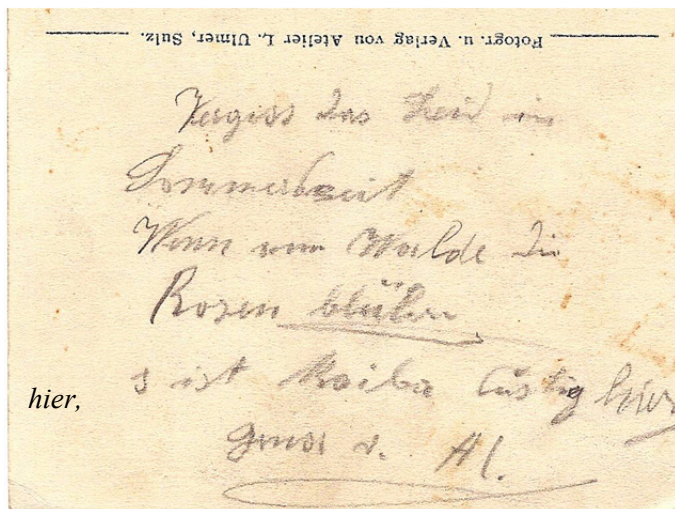 Fotogr. u. Verlag von Atelier L. Ulmer, Sulz.
Vergiss das Leid in
Sommerszeit
Wenn im Walde die
Rosen blühn
s ist koiba lustig hier
hier,
Gruss v. Al.